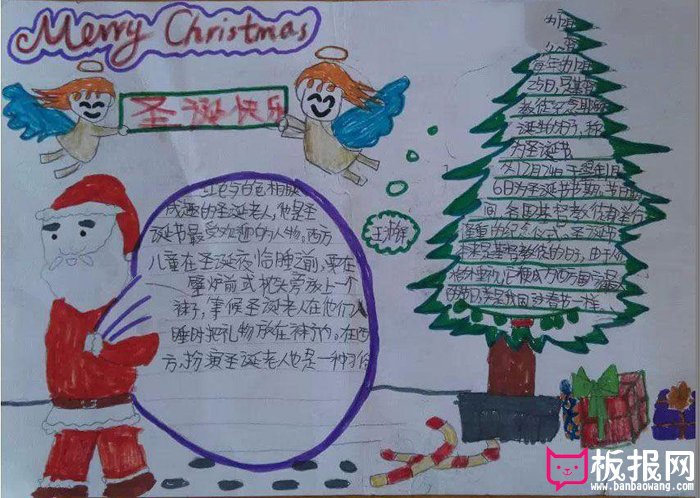 Merry Christmas
圣诞快乐
红色与白色相映
成趣的圣诞老人,他是圣
诞节最受欢迎的人物。西方
儿童在圣诞夜临睡前,要在
壁炉前或枕头旁放上一个
袜子,等候圣诞老人在他们入
睡时把礼物放在袜子内。在西
方,扮演圣诞老人也是一种习俗
12月
每年的12月
25日,是基督
教徒纪念耶稣
诞生的日子,称
为圣诞节
从12月24日
6日为圣诞节节期。节日期
间,各国基督教徒都举行
隆重的纪念仪式。圣诞节
本来是基督教徒的节日,由于人
样。
板报网
www.banbaowang.com